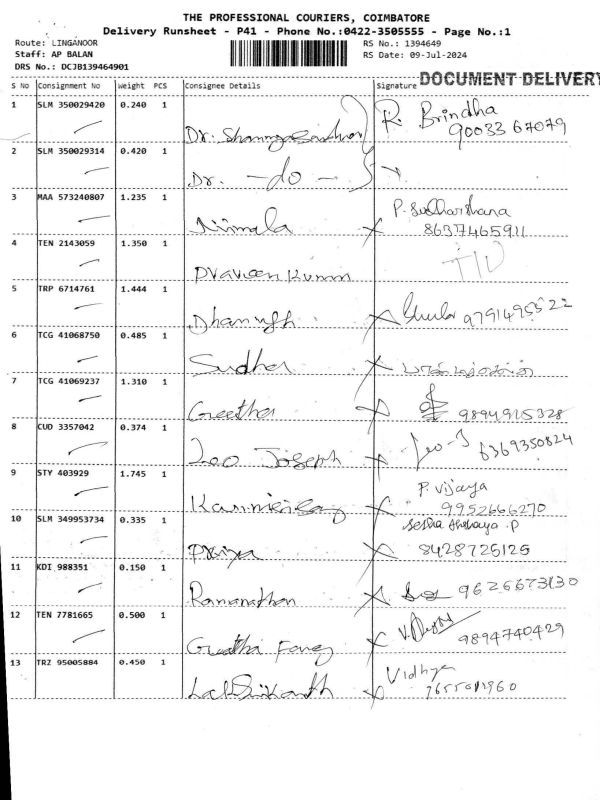 THE PROFESSIONAL COURIERS, COIMBATORE
Delivery Runsheet - P41 - Phone No.:0422-3505555 - Page No.:1
Route: LINGANOOR
RS No.: 1394649
Staff: AP BALAN
RS Date: 09-Jul-2024
DRS No.: DCJB139464901
DOCUMENT DELIVERY
S No Consignment No Weight PCS Consignee Details Signature
1 SLM 350029420 0.240 1 Dr. R. Brindha
90033 67079
2 SLM 350029314 0.420 1 Dr. - do -
3 MAA 573240807 1.235 1 Nirmala P. Sudharshana
8637465911
4 TEN 2143059 1.350 1 Praveen Kumar
5 TRP 6714761 1.444 1 Dhanush 9791495522
6 TCG 41068750 0.485 1 Sudha
7 TCG 41069237 1.310 1 Geetha 9894915328
8 CUD 3357042 0.374 1 Leo Joseph Leo-J 6369350824
9 STY 403929 1.745 1 P. Vijaya
9952666270
10 SLM 349953734 0.335 1 Priya P
8428725125
11 KDI 988351 0.150 1 Ramanathan 9626673130
12 TEN 7781665 0.500 1 Geetha Fancy 9894740429
13 TRZ 95005884 0.450 1 Lal Srikanth Vidhya